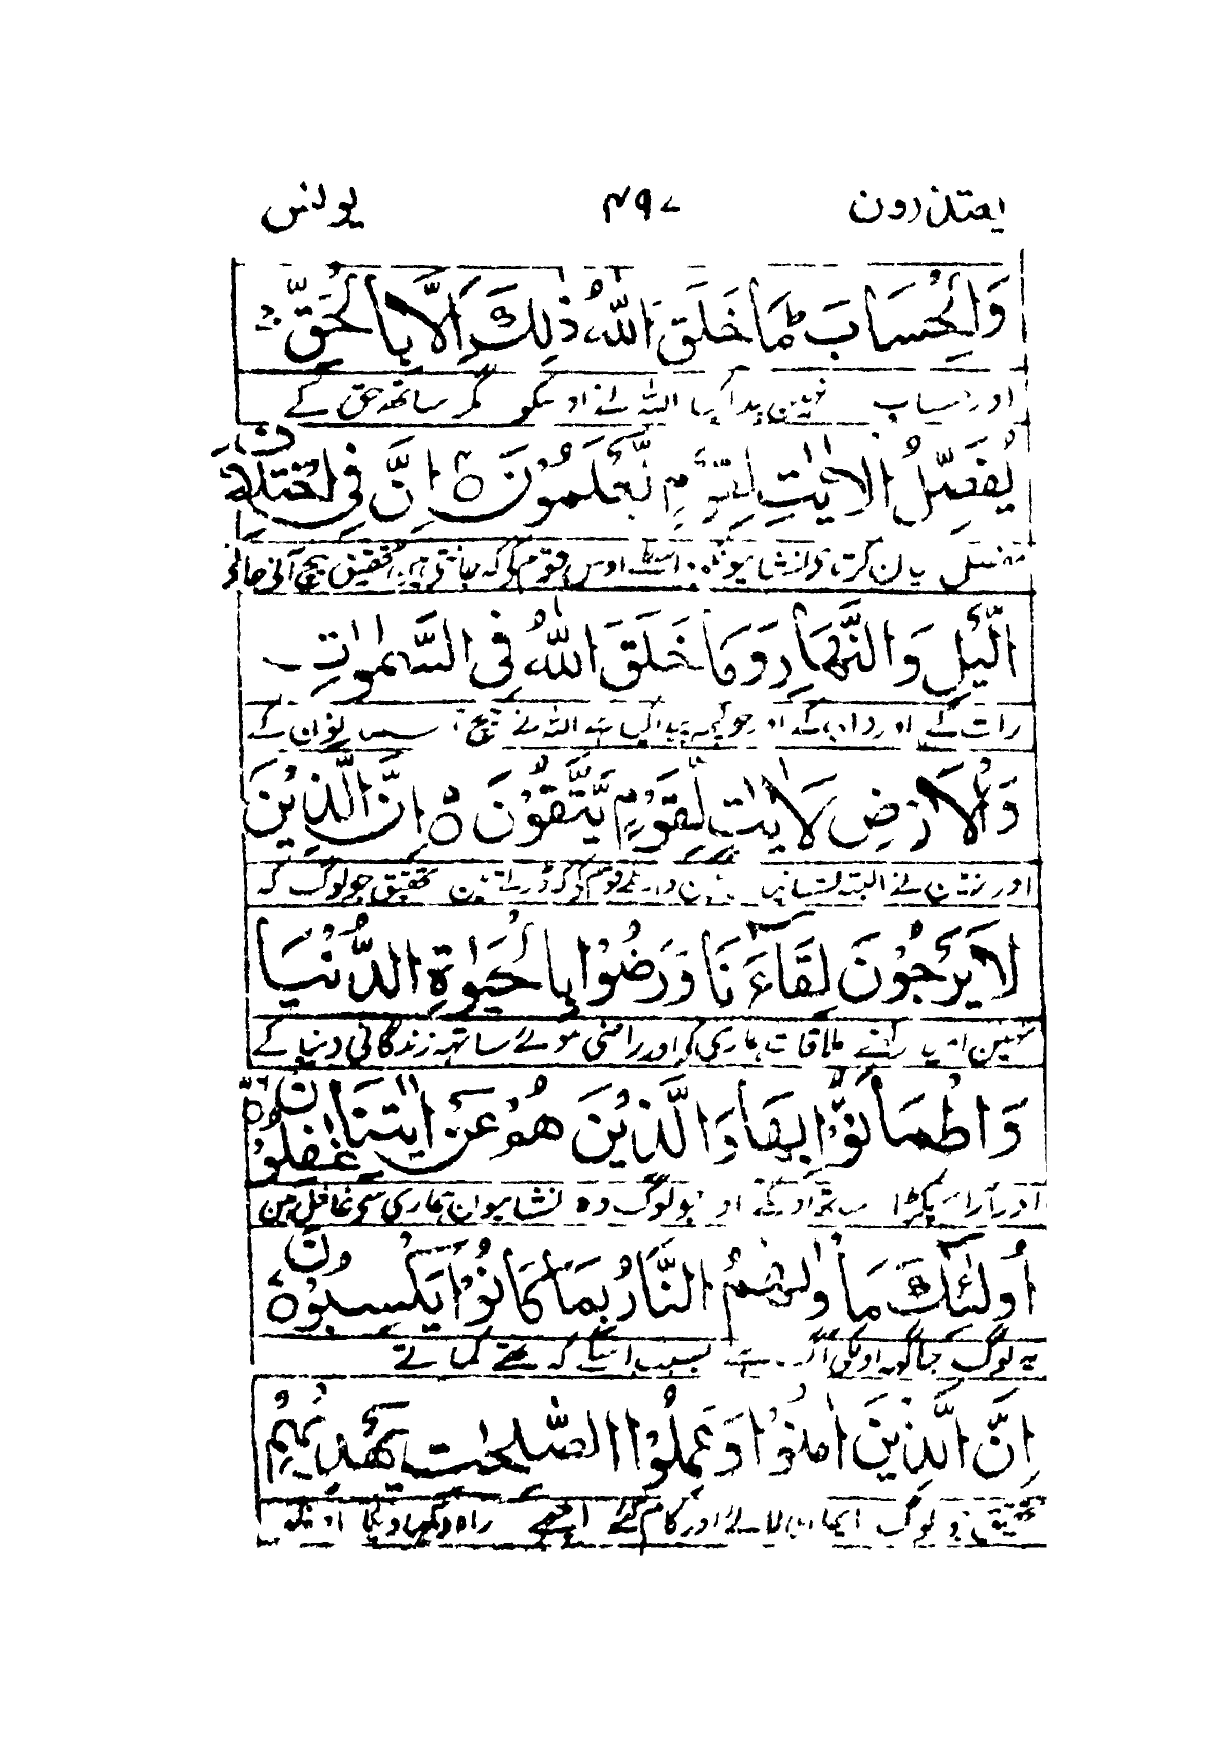 یعتذرون ۴۹۷ یونس
وَالْحِسَابَ ؕ مَا خَلَقَ اللّٰهُ ذٰلِكَ اِلَّا بِالْحَقِّ ۚ
اور حساب نہین پیدا کیا اللہ نے اوسکو مگر ساتھ حق کے
یُفَصِّلُ الْاٰیٰتِ لِقَوْمٍ یَّعْلَمُوْنَ ۝ اِنَّ فِی اخْتِلَافِ
مفصل بیان کرتا واسطے اوس قوم کے کہ جانتی ہین تحقیق بیچ آنی جانی
الَّیْلِ وَالنَّهَارِ وَمَا خَلَقَ اللّٰهُ فِی السَّمٰوٰتِ
رات کے اور دن کے اور جو کچھ پیدا کیا ہے اللہ نے بیچ کے
وَالْاَرْضِ لَاٰیٰتٍ لِّقَوْمٍ یَّتَّقُوْنَ ۝ اِنَّ الَّذِیْنَ
اور زمین کے البتہ نشانیاں قوم کے کہ ڈرتے ہین تحقیق جو لوگ کہ
لَا یَرْجُوْنَ لِقَآءَنَا وَرَضُوْا بِالْحَیٰوةِ الدُّنْیَا
نہین امید رکھتے ملاقات ہماری کی اور راضی ہوئے ساتھہ زندگانی دنیا کے
وَاطْمَاَنُّوْا بِهَا وَالَّذِیْنَ هُمْ عَنْ اٰیٰتِنَا غٰفِلُوْنَ ۝
اور آرام پکڑا ساتھ اوسکے اور جو لوگ وہ نشانیوں ہماری سی غافل ہین
اُولٰٓئِكَ مَاْوٰىهُمُ النَّارُ بِمَا كَانُوْا یَكْسِبُوْنَ ۝
یہ لوگ جاگہہ اونکی آگ ہے بسبب اسکے کہ تھے کماتے
اِنَّ الَّذِیْنَ اٰمَنُوْا وَعَمِلُوا الصّٰلِحٰتِ یَهْدِیْهِمْ
تحقیق جو لوگ ایمان لائے اور کام کئے اچھے راہ دکھاویگا اونکو